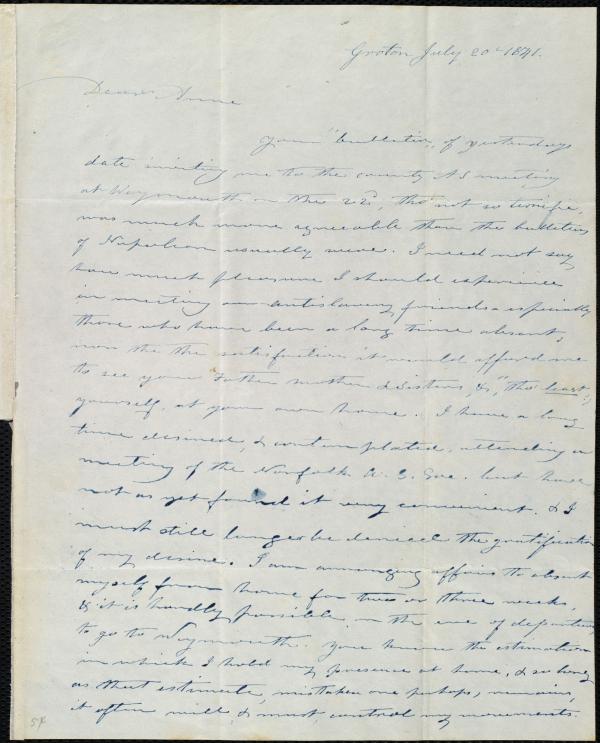 Groton July 20th 1841.
Dear Anne
your "bulletin" of yesterdays
date inviting me to the county A S meeting
at Weymouth on the 22d, tho' not so terrific,
was much more agreeable than the bulletins
of Napoleon usually were. I need not say
how much pleasure I should experience
in meeting our antislavery friends especially
those who have been a long time absent,
nor the satisfaction it would afford me
to see your Father mother & sisters, & "tho' last",
yourself, at your own home. I have a long
time desired, & contemplated, attending a
meeting of the Norfolk A. S. Soc. but have
not as yet found it very convenient. & I
must still longer be denied the gratification
of my desire. I am arranging affairs to absent
myself from home for two or three weeks,
& it is hardly possible, on the eve of departure,
to go to Weymouth. You know the estimation
in which I hold my presence at home, & so long
as that estimate, mistaken one perhaps, remains,
it often will, & must, control my movements.